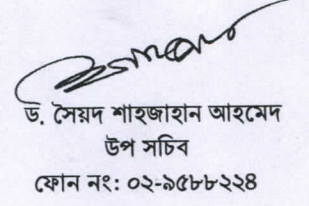 ড. সৈয়দ শাহজাহান আহমেদ
উপ সচিব
ফোন নং: ০২-৯৫৮৮২২৪